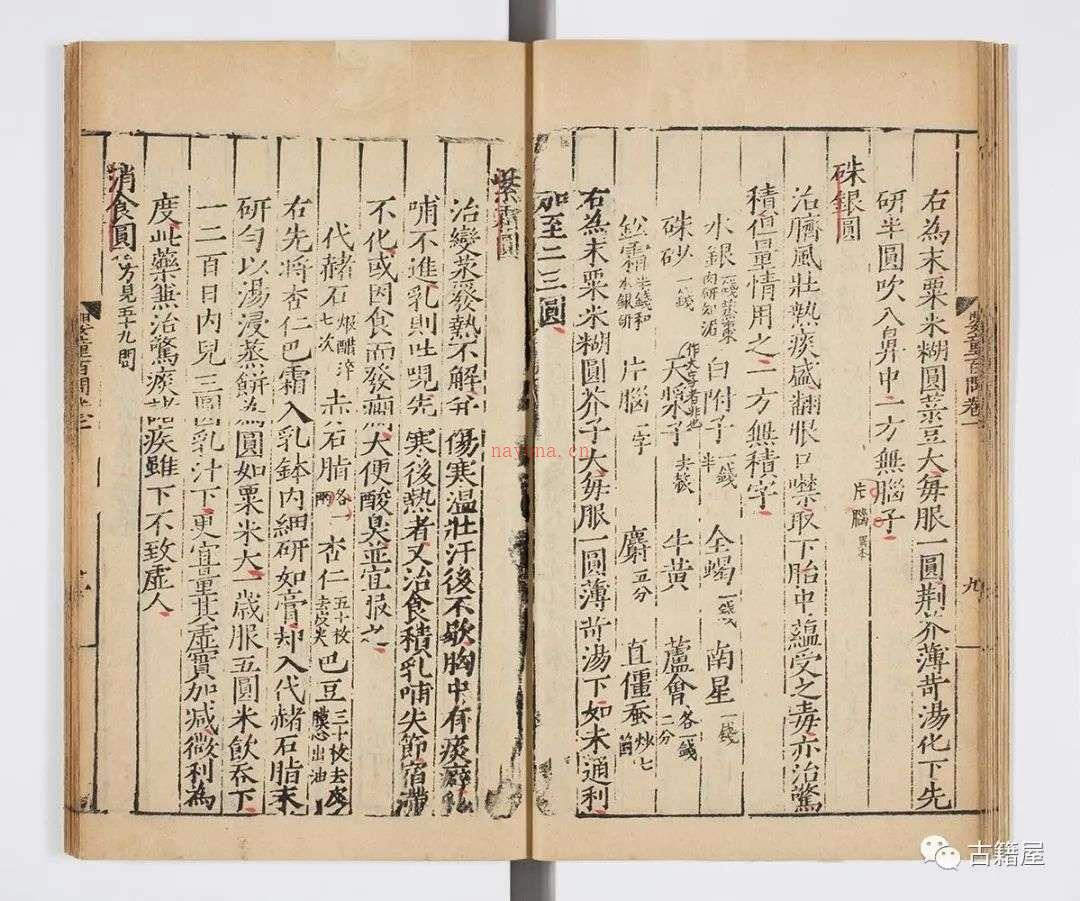 右為末粟米糊圓菉豆大每服一圓荆芥薄荷湯化下先
研半圓吹入鼻中一方無腦子
片腦
硃銀圓
治臍風壯熱痰盛翻眼口噤取下胎中蘊受之毒亦治驚
積但量情用之一方無積字
水銀一錢蒸棗肉研如泥 白附子一錢半 全蝎一錢 南星一錢
硃砂一錢 天漿子去殼 牛黃 蘆會各一錢二分
鉛霜半錢和水銀研 片腦一字 麝五分 直僵蚕炒七箇
右為末粟米糊圓芥子大每服一圓薄荷湯下如未通利
加至二三圓
嬰童百問卷一
九
紫霜圓
治變蒸發熱不解并傷寒溫壯汗後不歇胸中有痰癖
哺不進乳則吐哯先寒後熱者又治食積乳哺失節宿滯
不化或因食而發癎大便酸臭並宜服之
代赭石煅醋淬七次 赤石脂各一兩 杏仁五十枚去皮尖 巴豆三十枚去皮膜心出油
右先将杏仁巴霜入乳鉢内細研如膏却入代赭石脂末
研匀以湯浸蒸餅為圓如粟米大一歲服五圓米飲吞下
一二百日内兒三圓乳汁下更宜量其虛實加减微利為
度此藥兼治驚痰諸疾雖下不致虛人
消食圓方見五十九問
嬰童百問卷一
古籍屋
nayona.cn